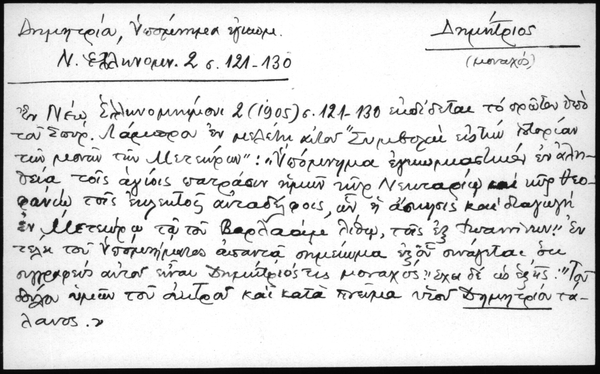 Δημητρίου, Ὑπόμνημα ἐγκωμ.
Δημήτριος
Ν. Ἑλληνομν. 2 σ. 121-130
(μοναχός)
Ἐν Νέῳ Ἑλληνομνήμονι 2 (1905) σ. 121-130 ἐκδίδεται τὸ πρῶτον ὑπὸ
τοῦ Σπυρ. Λάμπρου ἐν μελέτῃ αὐτοῦ "Συμβολαὶ εἰς τὴν ἱστορίαν
τῶν μονῶν τῶν Μετεώρων": "Ὑπόμνημα ἐγκωμιαστικὸν ἐν ἀλη-
θείᾳ τοῖς ἁγίοις πατράσιν ἡμῶν κῦρ Νεκταρίῳ καὶ κῦρ Θεο-
φάνῳ τοῖς εὐγενέσι αὐταδέλφοις, ὧν ἡ ἄσκησις καὶ διαγωγὴ
ἐν Μετεώρῳ τῷ τοῦ Βαρλαὰμ λίθῳ, τοῖς ἐξ Ἰωαννίνων". Ἐν
τέλει τοῦ Ὑπομνήματος ἀπαντᾷ σημείωμα ἐξ οὗ συνάγεται ὅτι
συγγραφεὺς αὐτοῦ εἶναι Δημήτριός τις μοναχός· ἔχει δὲ ὡς ἑξῆς: "Τοῦ
δούλου ὑμῶν τοῦ οἰκτροῦ καὶ κατὰ πνεῦμα υἱοῦ Δημητρίου τά-
λανος.»